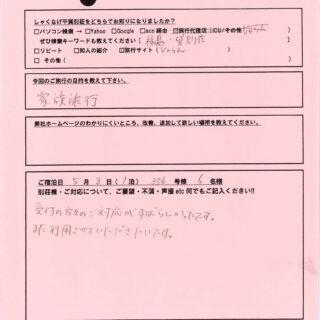 しゃくなげ平貸別荘をどちらでお知りになりましたか？
□パソコン検索 → □Yahoo □Google □aco 経由 □旅行代理店（JCU/その他 じゃらん）
ぜひ検索キーワードも教えてください（福島 貸別荘）
□リピート □知人の紹介 □旅行サイト（じゃらん）
□ その他（
今回のご旅行の目的を教えて下さい。
家族旅行
弊社ホームページのわかりにくいところ、改善、追加して欲しい場所を教えてください。
ご宿泊日 5 月 3 日（1泊） 256 号棟 6 名様
別荘棟・ご対応について、ご要望・不満・声援 etc 何でもご記入ください!!
受付の方々のご対応がすばらしかったです。
また利用させていただきたいです。